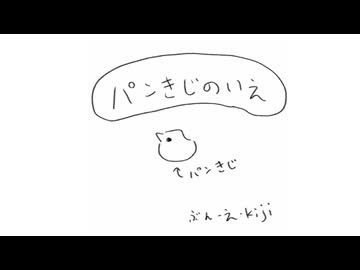 パンきじのいえ
↑パンきじ
ぶん・え・kiji